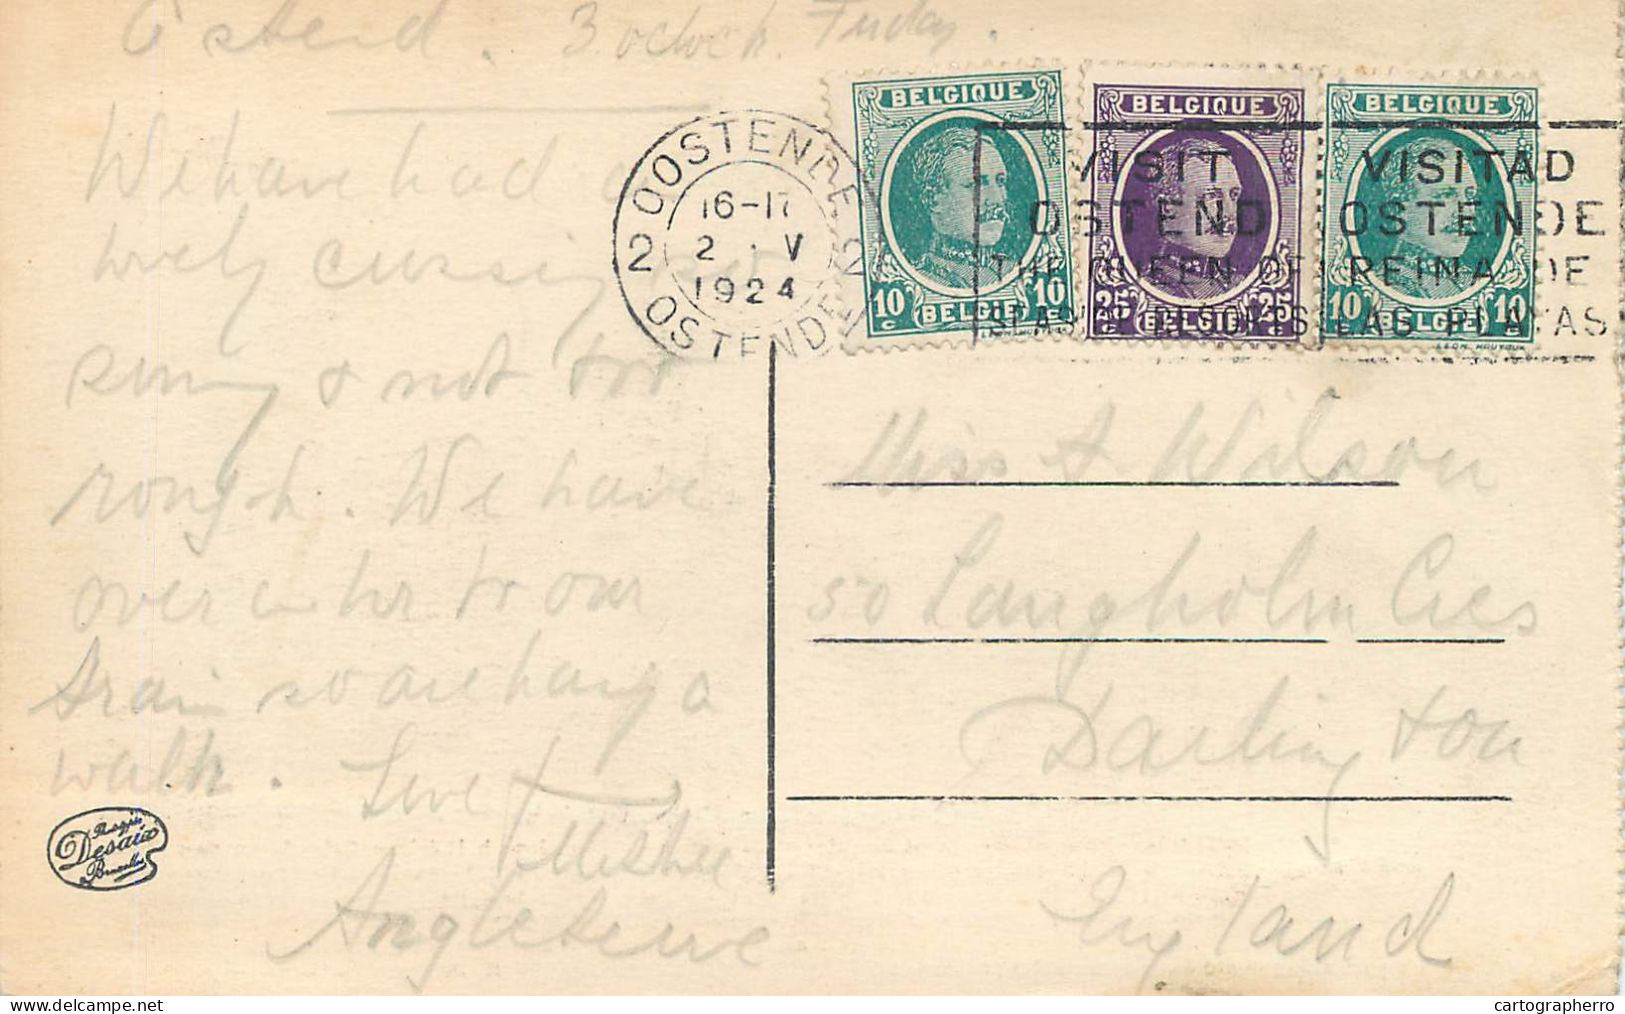 Ostend. 3 oclock. Friday.
We have had a
lovely crossing
sunny & not too
rough. We have
over an hr to our
train so are having a
walk. Love
Angleterre
OOSTENDE
2 2
16-17
2 . V
1924
OSTENDE
BELGIQUE
10 c 10 c
BELGIË
BELGIQUE
25 c 25 c
BELGIË
BELGIQUE
10 10
BELGIË
VISIT
OSTEND
THE QUEEN OF
SEASIDE RESORTS
VISITAD
OSTENDE
REINA DE
LAS PLAYAS
Miss A. Wilson
50 Langholm Cres
Darlington
England
Desaix
Bruxelles
cartographerro